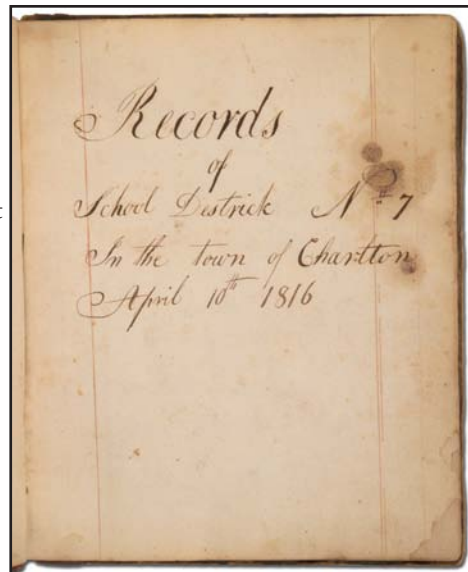 Records
of
School Destrick No 7
In the town of Charlton
April 10th 1816